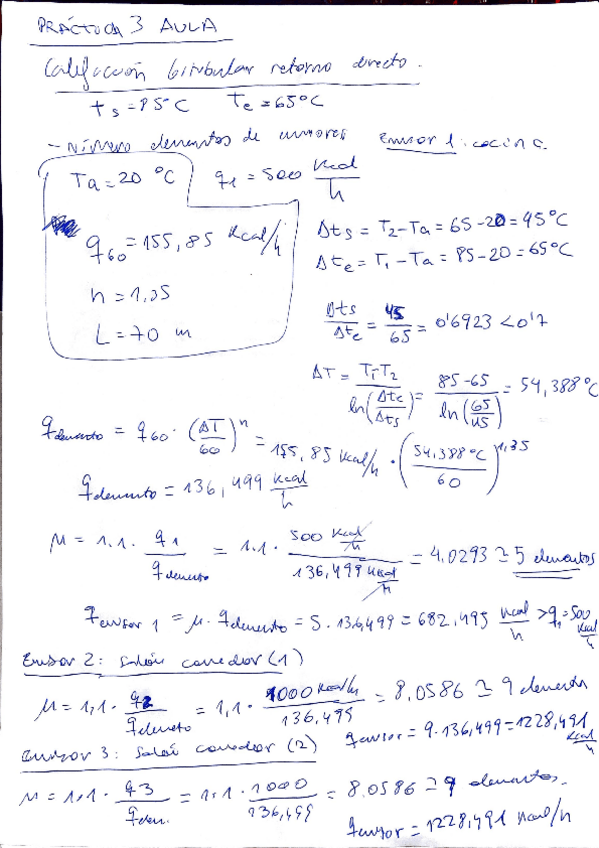 PRÁCTICA 3 AULA
Calefacción bitubular retorno directo.
ts = 85°C Te = 65°C
- Número elementos de emisores Emisor 1: cocina.
Ta = 20 °C q1 = 500 Kcal/h
q60 = 155,85 Kcal/h
Δts = T2 - Ta = 65 - 20 = 45°C
Δte = T1 - Ta = 85 - 20 = 65°C
n = 1,35
L = 70 m
Δts/Δte = 45/65 = 0'6923 < 0'7
ΔT = T1-T2/ln(Δte/Δts) = 85-65/ln(65/45) = 54,388 °C
qelemento = q60 · (ΔT/60)^n = 155,85 Kcal/h · (54,388°C/60)^1,35
qelemento = 136,499 Kcal/h
μ = 1.1 · q1/qelemento = 1.1 · 500 Kcal/h / 136,499 Kcal/h = 4.0293 ≅ 5 elementos
qemisor 1 = μ · qelemento = 5 · 136,499 = 682.495 Kcal/h > q1 = 500 Kcal/h
Emisor 2: salón comedor (1)
μ = 1,1 · q2/qelemento = 1,1 · 1000 Kcal/h / 136,499 = 8.0586 ≅ 9 elementos
qemisor = 9 · 136,499 = 1228,491 Kcal/h
Emisor 3: salón comedor (2)
μ = 1,1 · q3/qelem. = 1.1 · 1000/136,499 = 8.0586 ≅ 9 elementos.
qemisor = 1228,491 Kcal/h